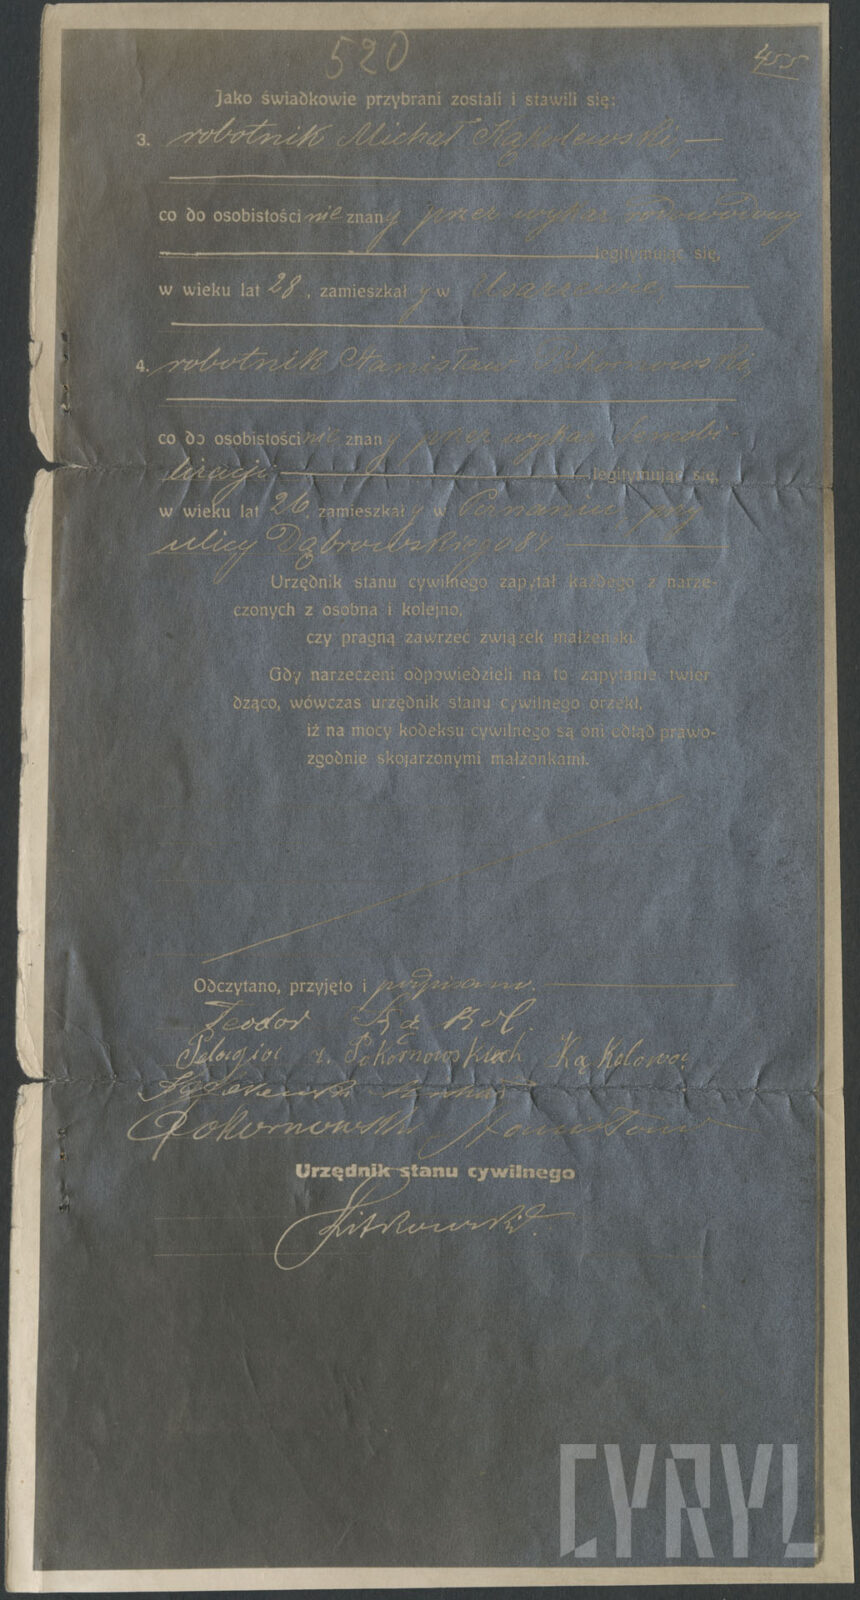 520
455
Jako świadkowie przybrani zostali i stawili się:
3. robotnik Michał
co do osobistości nie znany przez wykaz
legitymując się,
w wieku lat 28, zamieszkały w Usarzewie,
4. robotnik Stanisław Pokornowski,
co do osobistości nie znany przez wykaz demobi-
lizacji legitymując się,
w wieku lat 26, zamieszkały w Poznaniu, przy
ulicy Dąbrowskiego 84
Urzędnik stanu cywilnego zapytał każdego z narze-
czonych z osobna i kolejno,
czy pragną zawrzeć związek małżeński.
Gdy narzeczeni odpowiedzieli na to zapytanie twier-
dząco, wówczas urzędnik stanu cywilnego orzekł,
iż na mocy kodeksu cywilnego są oni odtąd prawo-
zgodnie skojarzonymi małżonkami.
Odczytano, przyjęto i podpisano.
Teodor Kąkol.
Pelagia z. Pokornowskich Kąkolowa.
Pokornowski Stanisław
Urzędnik stanu cywilnego
CYRYL